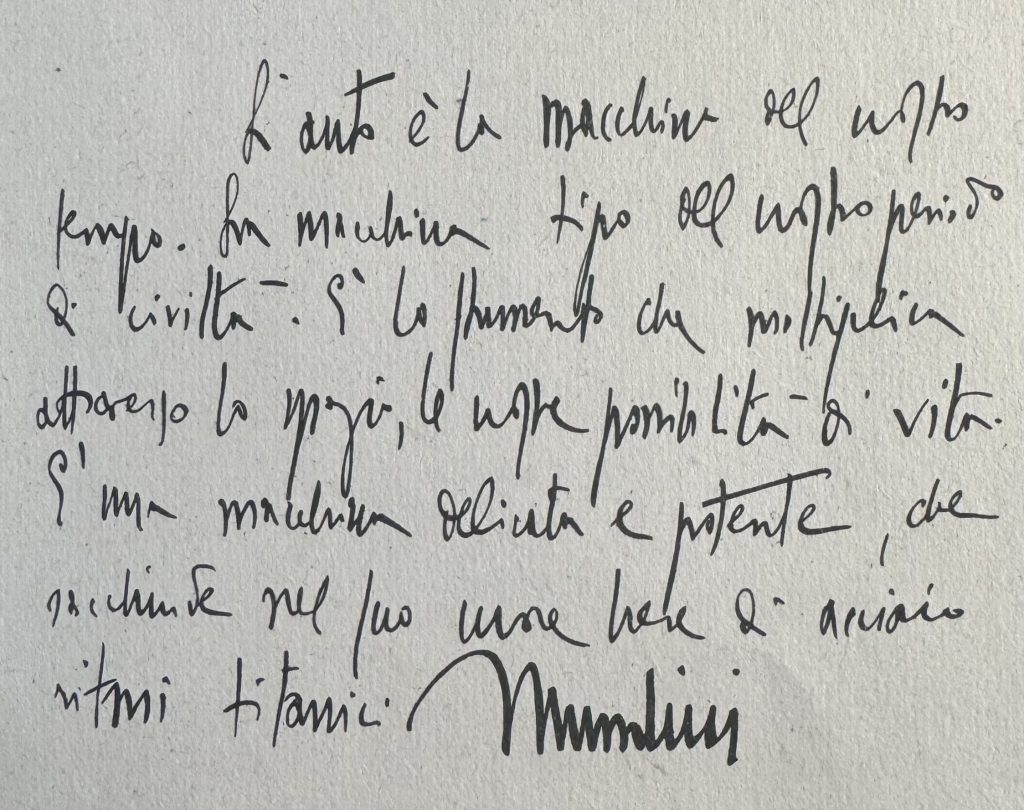 L'auto è la macchina del nostro
tempo. La macchina tipo del nostro periodo
di civiltà. E' lo strumento che moltiplica
attraverso lo spazio, le nostre possibilità di vita.
E' una macchina delicata e potente, che
racchiude nel suo cuore breve di acciaio
ritmi titanici.
Mussolini